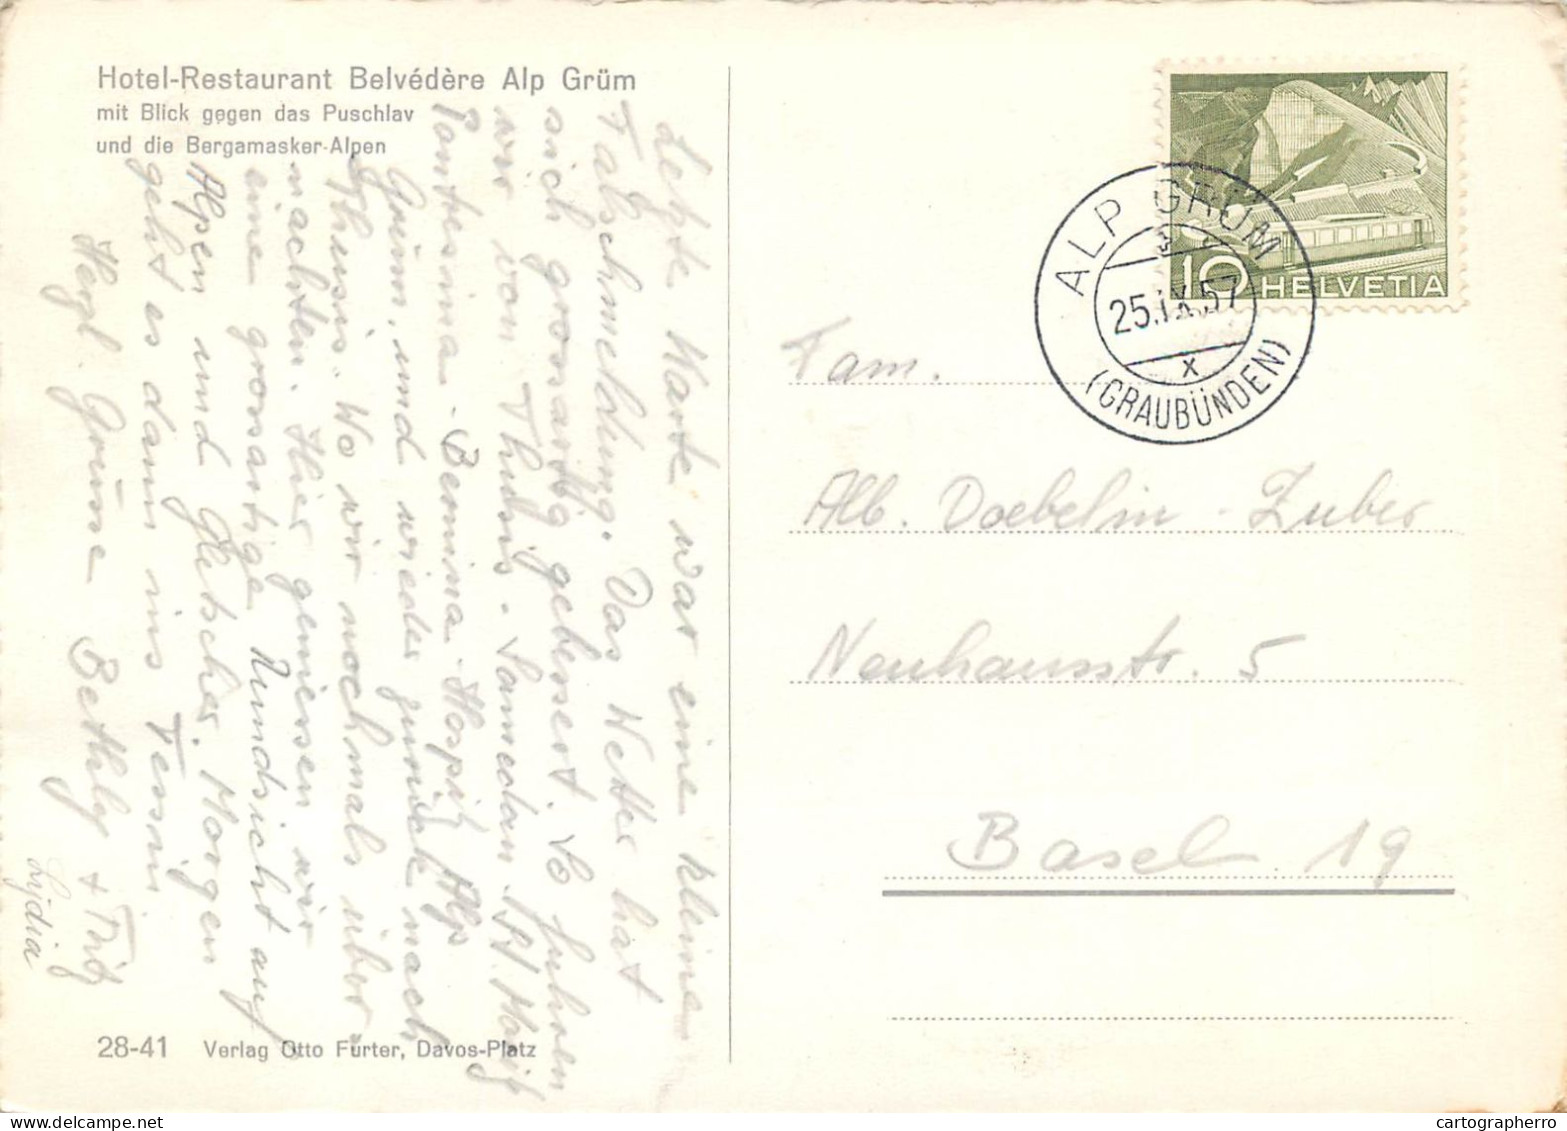 Hotel-Restaurant Belvédère Alp Grüm
mit Blick gegen das Puschlav
und die Bergamasker-Alpen
Letzte Karte war eine kleine
Falschmeldung. Das Wetter hat
sich grossartig gebessert. So fuhren
wir von Thusis - Samedan St. Moritz
Pontresina - Bernina-Hospiz Alp
Grüm, und wieder zurück nach
Thusis. Wo wir nochmals über-
nachten. Hier geniessen wir
eine grossartige Rundsicht auf
Alpen und Gletscher. Morgen
geht es dann ins Tessin
Herzl. Grüsse Bethly + Fritz
Lydia
28-41 Verlag Otto Furter, Davos-Platz
10 HELVETIA
ALP GRÜM
25.IX.57
x
(GRAUBÜNDEN)
Fam.
Alb. Doebelin-Zuber
Neuhausstr. 5
Basel 19
cartographerro